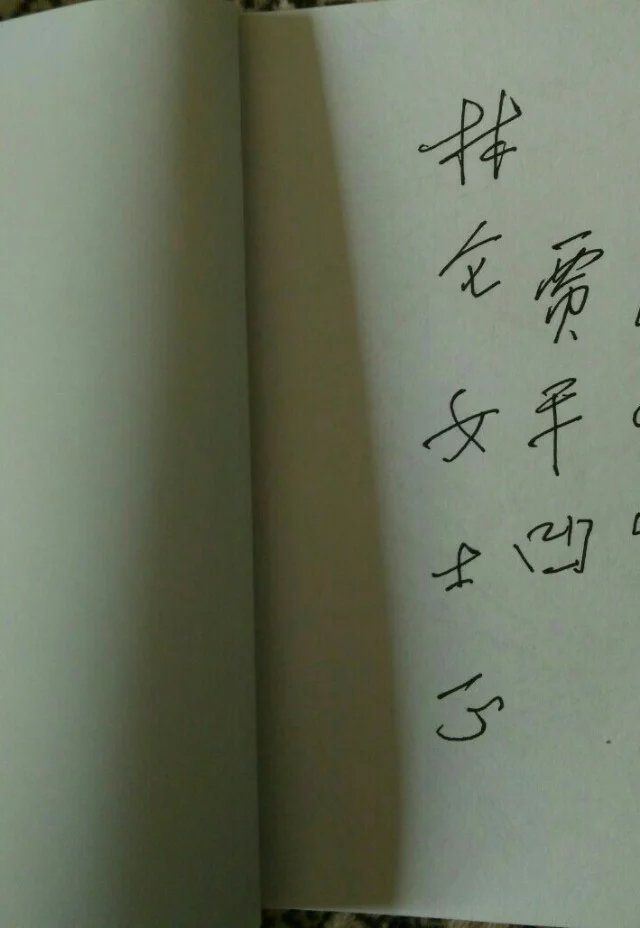 林仑女士正
贾平凹